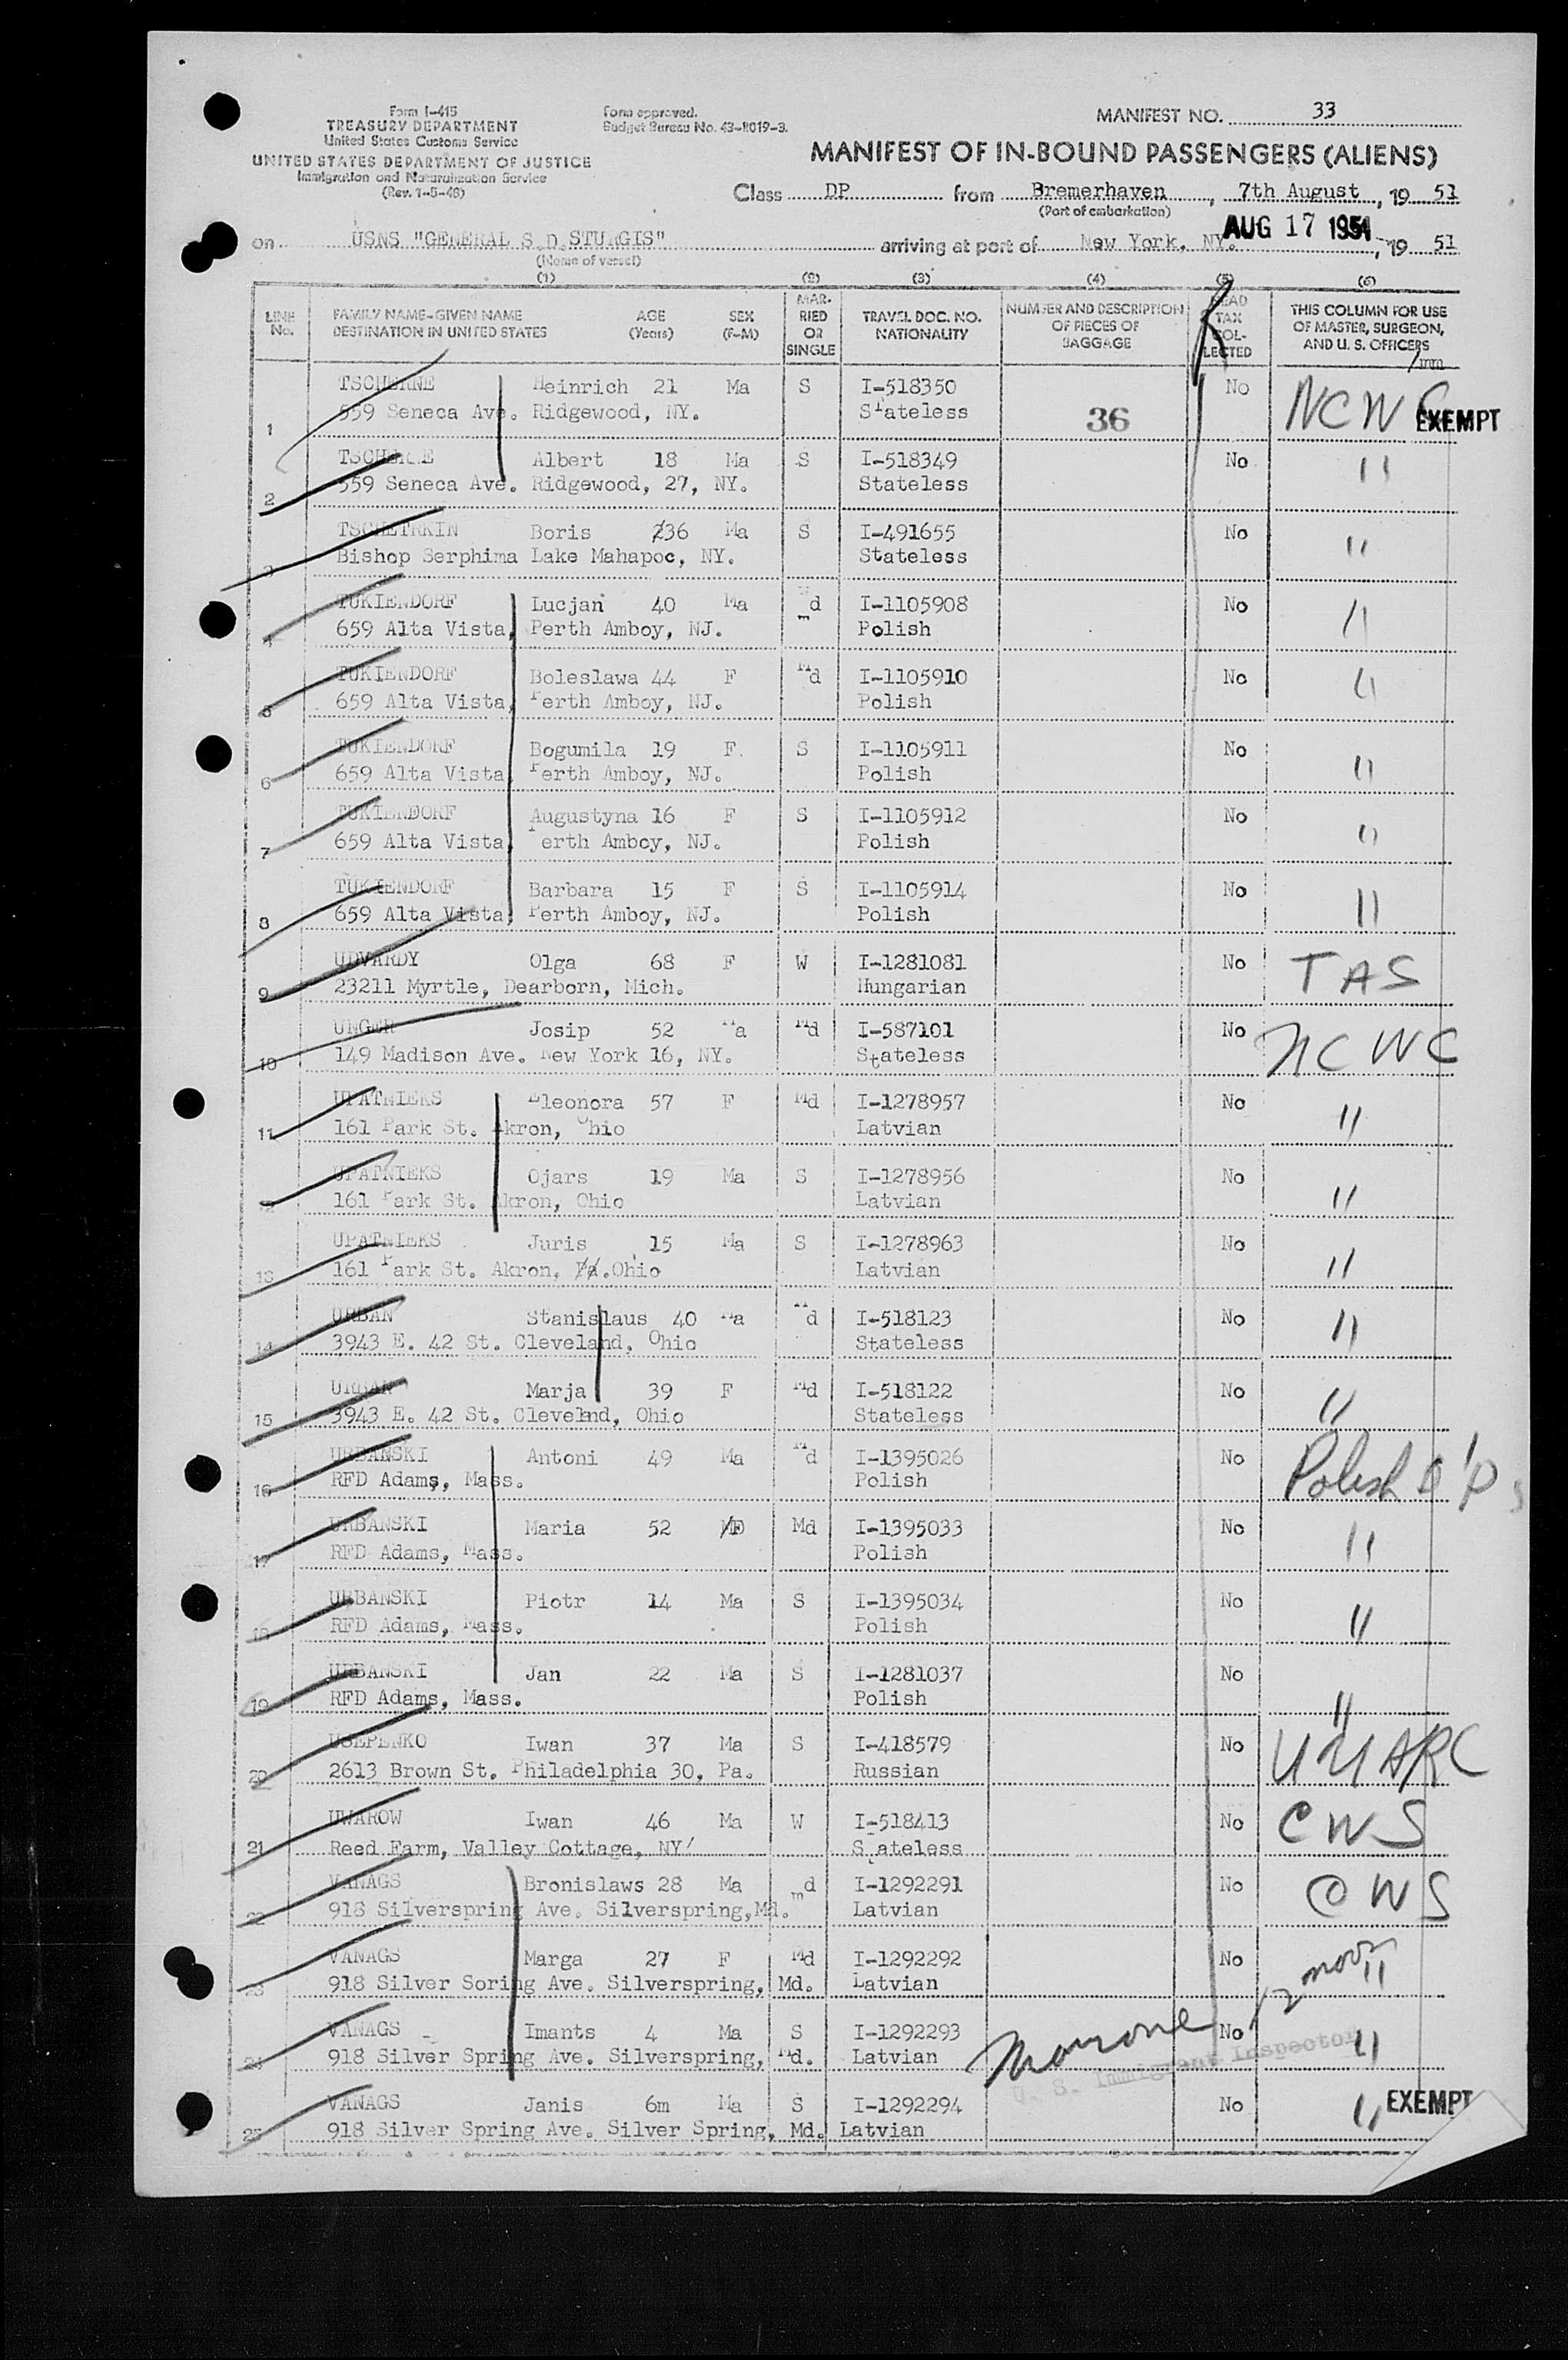 Form I-415
TREASURY DEPARTMENT
United States Customs Service
UNITED STATES DEPARTMENT OF JUSTICE
Immigration and Naturalization Service
(Rev. 1-5-48)
Form approved.
Budget Bureau No. 43-R019-3.
MANIFEST NO. 33
MANIFEST OF IN-BOUND PASSENGERS (ALIENS)
Class DP from Bremerhaven, 7th August, 19 51
(Port of embarkation)
AUG 17 1951
on USNS "GENERAL S.D.STURGIS" arriving at port of New York, NY., 19 51
(Name of vessel)
(1) (2) (3) (4) (5) (6)
LINE No. FAMILY NAME-GIVEN NAME DESTINATION IN UNITED STATES AGE (Years) SEX (F-M) MARRIED OR SINGLE TRAVEL DOC. NO. NATIONALITY NUMBER AND DESCRIPTION OF PIECES OF BAGGAGE HEAD TAX COLLECTED THIS COLUMN FOR USE OF MASTER, SURGEON, AND U. S. OFFICERS
TSCHERNE Heinrich 21 Ma S I-518350 No NCWC EXEMPT
1 559 Seneca Ave. Ridgewood, NY. Stateless 36
TSCHERNE Albert 18 Ma S I-518349 No "
2 559 Seneca Ave. Ridgewood, 27, NY. Stateless
TSCHETRKIN Boris 236 Ma S I-491655 No "
3 Bishop Serphima Lake Mahapoc, NY. Stateless
TUKIENDORF Lucjan 40 Ma md I-1105908 No "
4 659 Alta Vista, Perth Amboy, NJ. Polish
TUKIENDORF Boleslawa 44 F Md I-1105910 No "
5 659 Alta Vista, Perth Amboy, NJ. Polish
TUKIENDORF Bogumila 19 F. S I-1105911 No "
6 659 Alta Vista, Perth Amboy, NJ. Polish
TUKIENDORF Augustyna 16 F S I-1105912 No "
7 659 Alta Vista, Perth Amboy, NJ. Polish
TUKIENDORF Barbara 15 F S I-1105914 No "
8 659 Alta Vista, Perth Amboy, NJ. Polish
UDVARDY Olga 68 F W I-1281081 No TAS
9 23211 Myrtle, Dearborn, Mich. Hungarian
UNGER Josip 52 Ma Md I-587101 No NCWC
10 149 Madison Ave. New York 16, NY. Stateless
UPATNIEKS Eleonora 57 F Md I-1278957 No "
11 161 Park St. Akron, Ohio Latvian
UPATNIEKS Ojars 19 Ma S I-1278956 No "
12 161 Park St. Akron, Ohio Latvian
UPATNIEKS Juris 15 Ma S I-1278963 No "
13 161 Park St. Akron, Pa.Ohio Latvian
URBAN Stanislaus 40 Ma Md I-518123 No "
14 3943 E. 42 St. Cleveland, Ohio Stateless
URBAN Marja 39 F Md I-518122 No "
15 3943 E. 42 St. Cleveland, Ohio Stateless
URBANSKI Antoni 49 Ma Md I-1395026 No Polish D'Ps
16 RFD Adams, Mass. Polish
URBANSKI Maria 52 F Md I-1395033 No "
17 RFD Adams, Mass. Polish
URBANSKI Piotr 14 Ma S I-1395034 No "
18 RFD Adams, Mass. Polish
URBANSKI Jan 22 Ma S I-1281037 No "
19 RFD Adams, Mass. Polish
USEPENKO Iwan 37 Ma S I-418579 No UUARC
20 2613 Brown St. Philadelphia 30, Pa. Russian
UWAROW Iwan 46 Ma W I-518413 No CWS
21 Reed Farm, Valley Cottage, NY/ Stateless
VANAGS Bronislaws 28 Ma md I-1292291 No CWS
22 918 Silverspring Ave. Silverspring,Md. Latvian
VANAGS Marga 27 F Md I-1292292 No "
23 918 Silver Soring Ave. Silverspring, Md. Latvian
VANAGS Imants 4 Ma S I-1292293 No "
24 918 Silver Spring Ave. Silverspring, Md. Latvian
U. S. Immigrant Inspector
VANAGS Janis 6m Ma S I-1292294 No " EXEMPT
25 918 Silver Spring Ave. Silver Spring, Md. Latvian